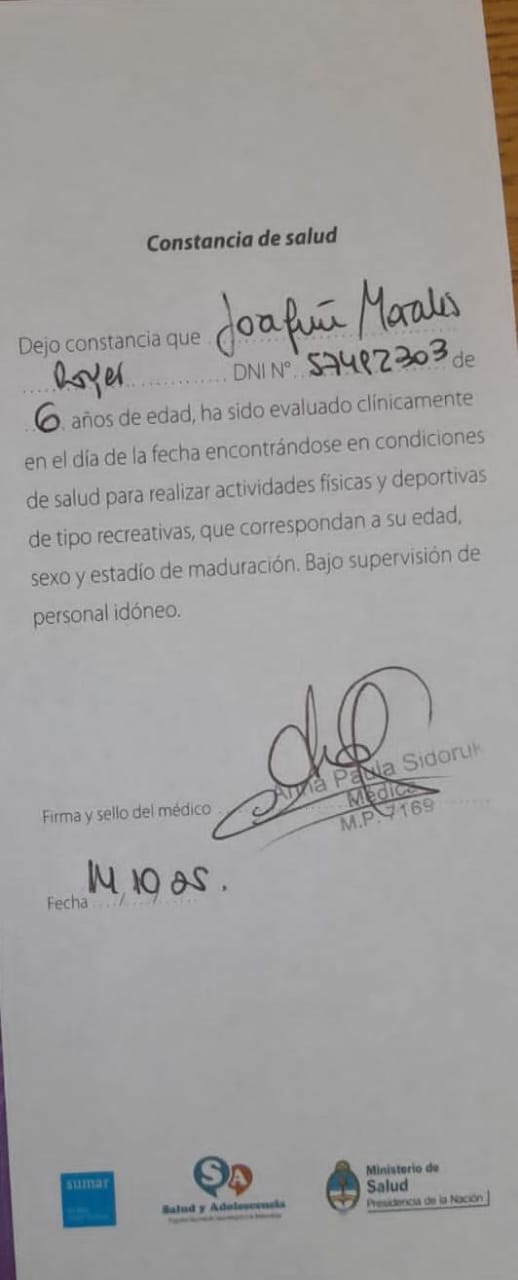 Constancia de salud
Dejo constancia que Joaquín Morales
Royer DNI N° 57492303 de
6 años de edad, ha sido evaluado clínicamente
en el día de la fecha encontrándose en condiciones
de salud para realizar actividades físicas y deportivas
de tipo recreativas, que correspondan a su edad,
sexo y estadío de maduración. Bajo supervisión de
personal idóneo.
Paula Sidoruk
Médica
Firma y sello del médico
M.P. 7169
Fecha 14/10/25.
sumar
SA
Salud y Adolescencia
Ministerio de
Salud
Presidencia de la Nación